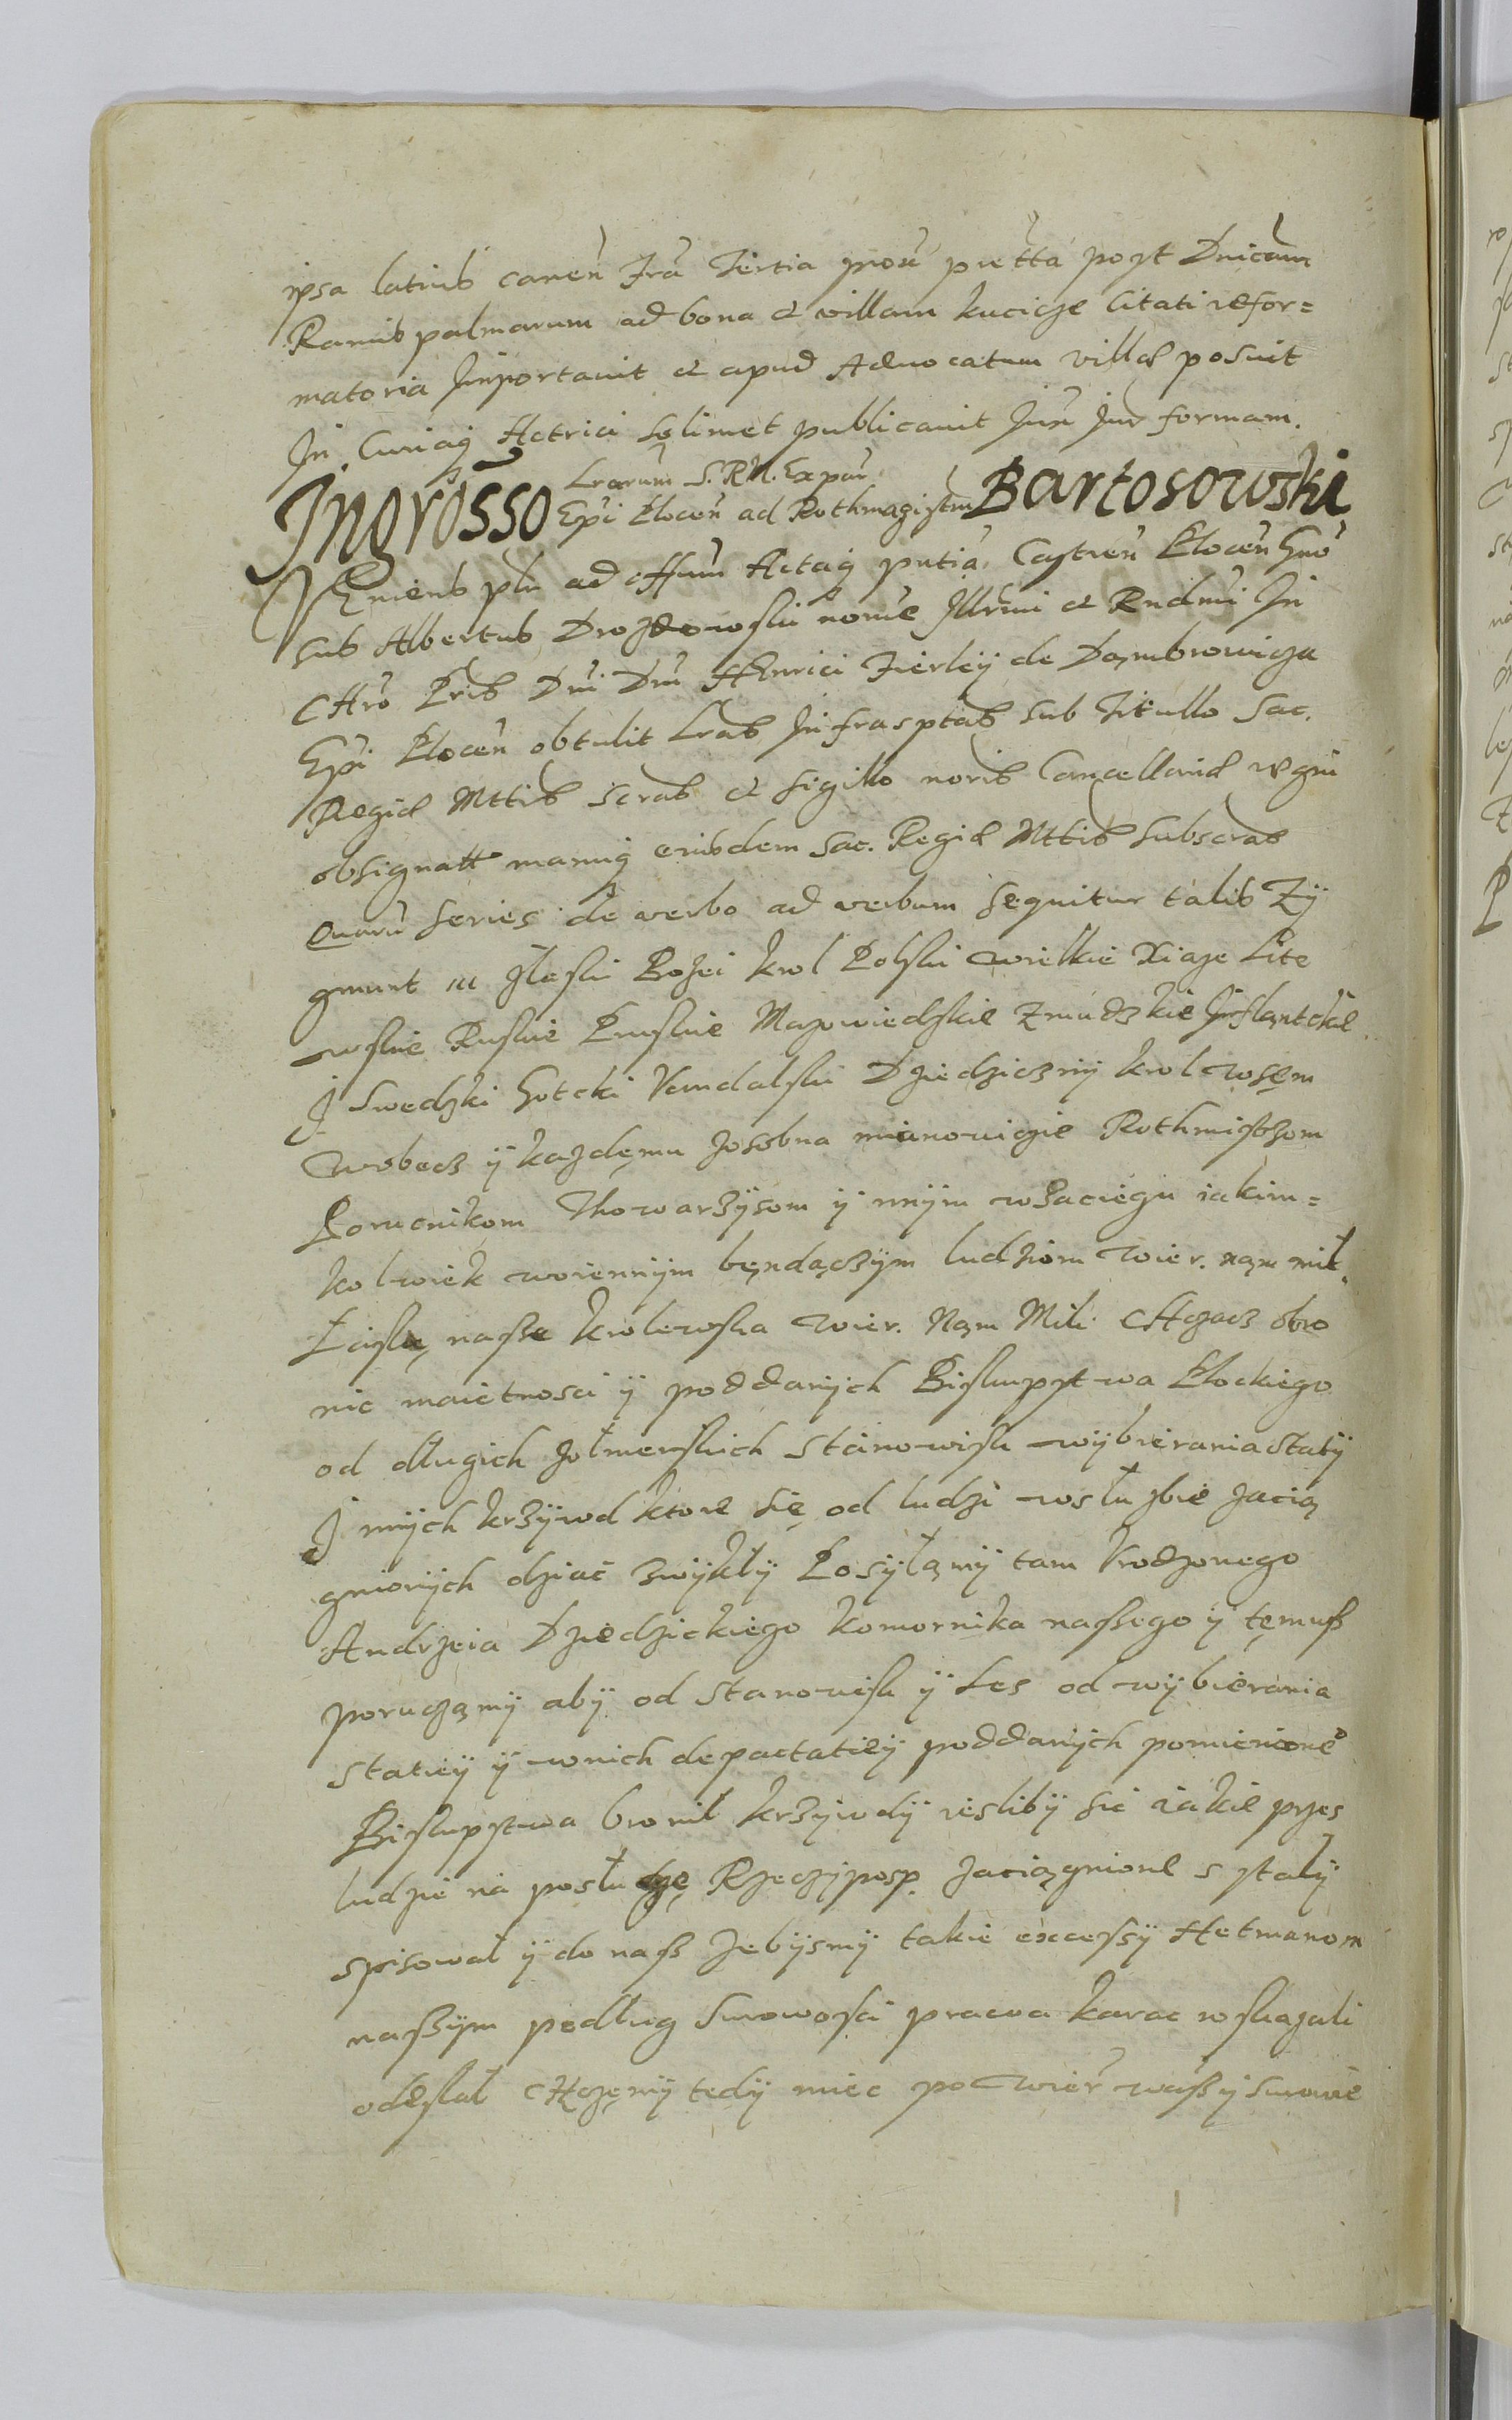 ipsa latius canen Fra Tertia prou pretta post Dnicam
Ramis palmarum ad bona et villam kucicze Citati refor=
matoria Jmportauit et apud Aduocatum villae posuit
In Curiaq Actrici solimet publicauit Jux Jur formam.
Ingrosso Lrarum S. R. M. Ex par Epi Plocen ad Rothmagistrum Bartosowski
VEniens pln ad offum Actaq pntia Castren Plocen Gno
sus Albertus Drozdowski nome Illrmi et Rndmi In
CHro Pris Dni Dni HEnrici Firleÿ de Dąmbrowicza
Epi Plocen obtulit Lras Infrasptas sub Titullo Sac.
Regiae Mttis scras et sigillo noris Cancellariae regni
obsignatt manuq eiusdem Sac. Regiae Mttis subscras
Quaru series de verbo ad verbum sequitur talis Zÿ
gmunt III złaski Bozei krol Polski wielkie Xiąze Lite
wskie Ruskie Pruskie Mazowiedzkie Zmudzkie Jnflantckie
J Swedzki Gotcki Vandalski Dziedzicznÿ krol wsęm
wobecz ÿ kazdęmu zosobna mianowicie Rothmistrzom
Porucnikom Thowarzÿsom ÿ innÿm wzaciegu iakim=
kolwiek woiennÿm bęndączÿm ludziom wier. nąm mił.
Łaskę nasze krolewska wier. Nąm Mili CHcącz obro
nic maietnosci ÿ poddanÿch Biskupstwa Płockiego
od długich zołnierskich stanowisk wÿbierania statÿ
J innÿch krzÿwd ktore się od ludzi wsłuzbie zacią
gnionÿch dziac zwÿkłÿ Posÿłąmÿ tam Vrodzonego
Andrzeia Dziedzickiego komornika nassego ÿ tęmuss
poruczamÿ abÿ od stanowisk ÿ Les od wÿbierania
statieÿ ÿ wnich depactatieÿ poddanÿch pomienione°
Biskupstwa bronił krzÿwdÿ ieslibÿ sie iakie przes
ludzie na posłudzę Rzeczÿposp. zaciągnione s stałÿ
spisował ÿ do nass zebÿsmÿ takie excessÿ Hetmanom
naszÿm podług surowosci prawa karac wskazali
odesłał CHczęmÿ tedÿ miec po wier waszÿ surowie